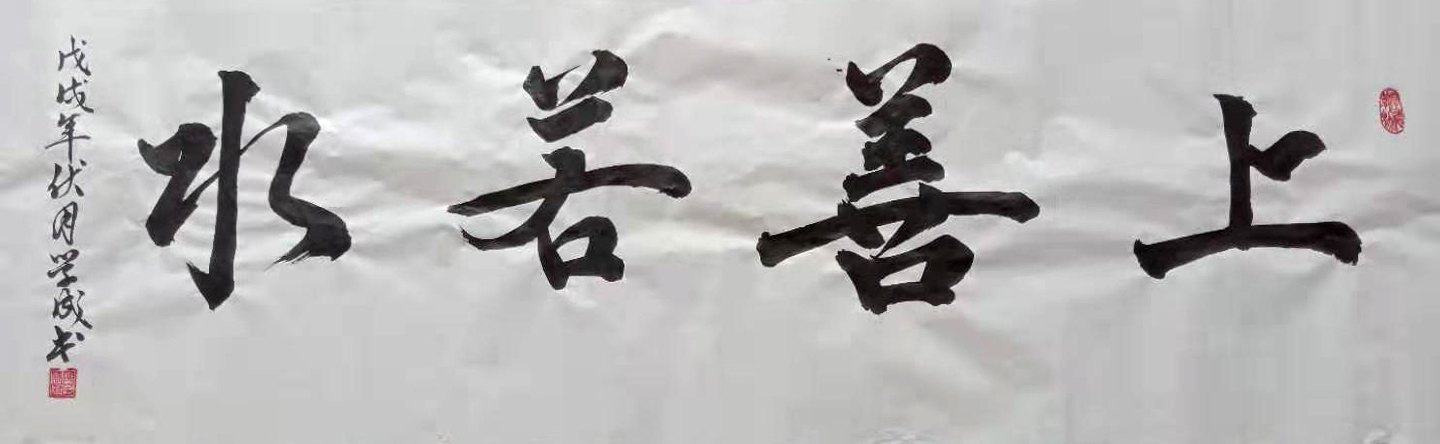 上善若水
戊戌年伏月学成书